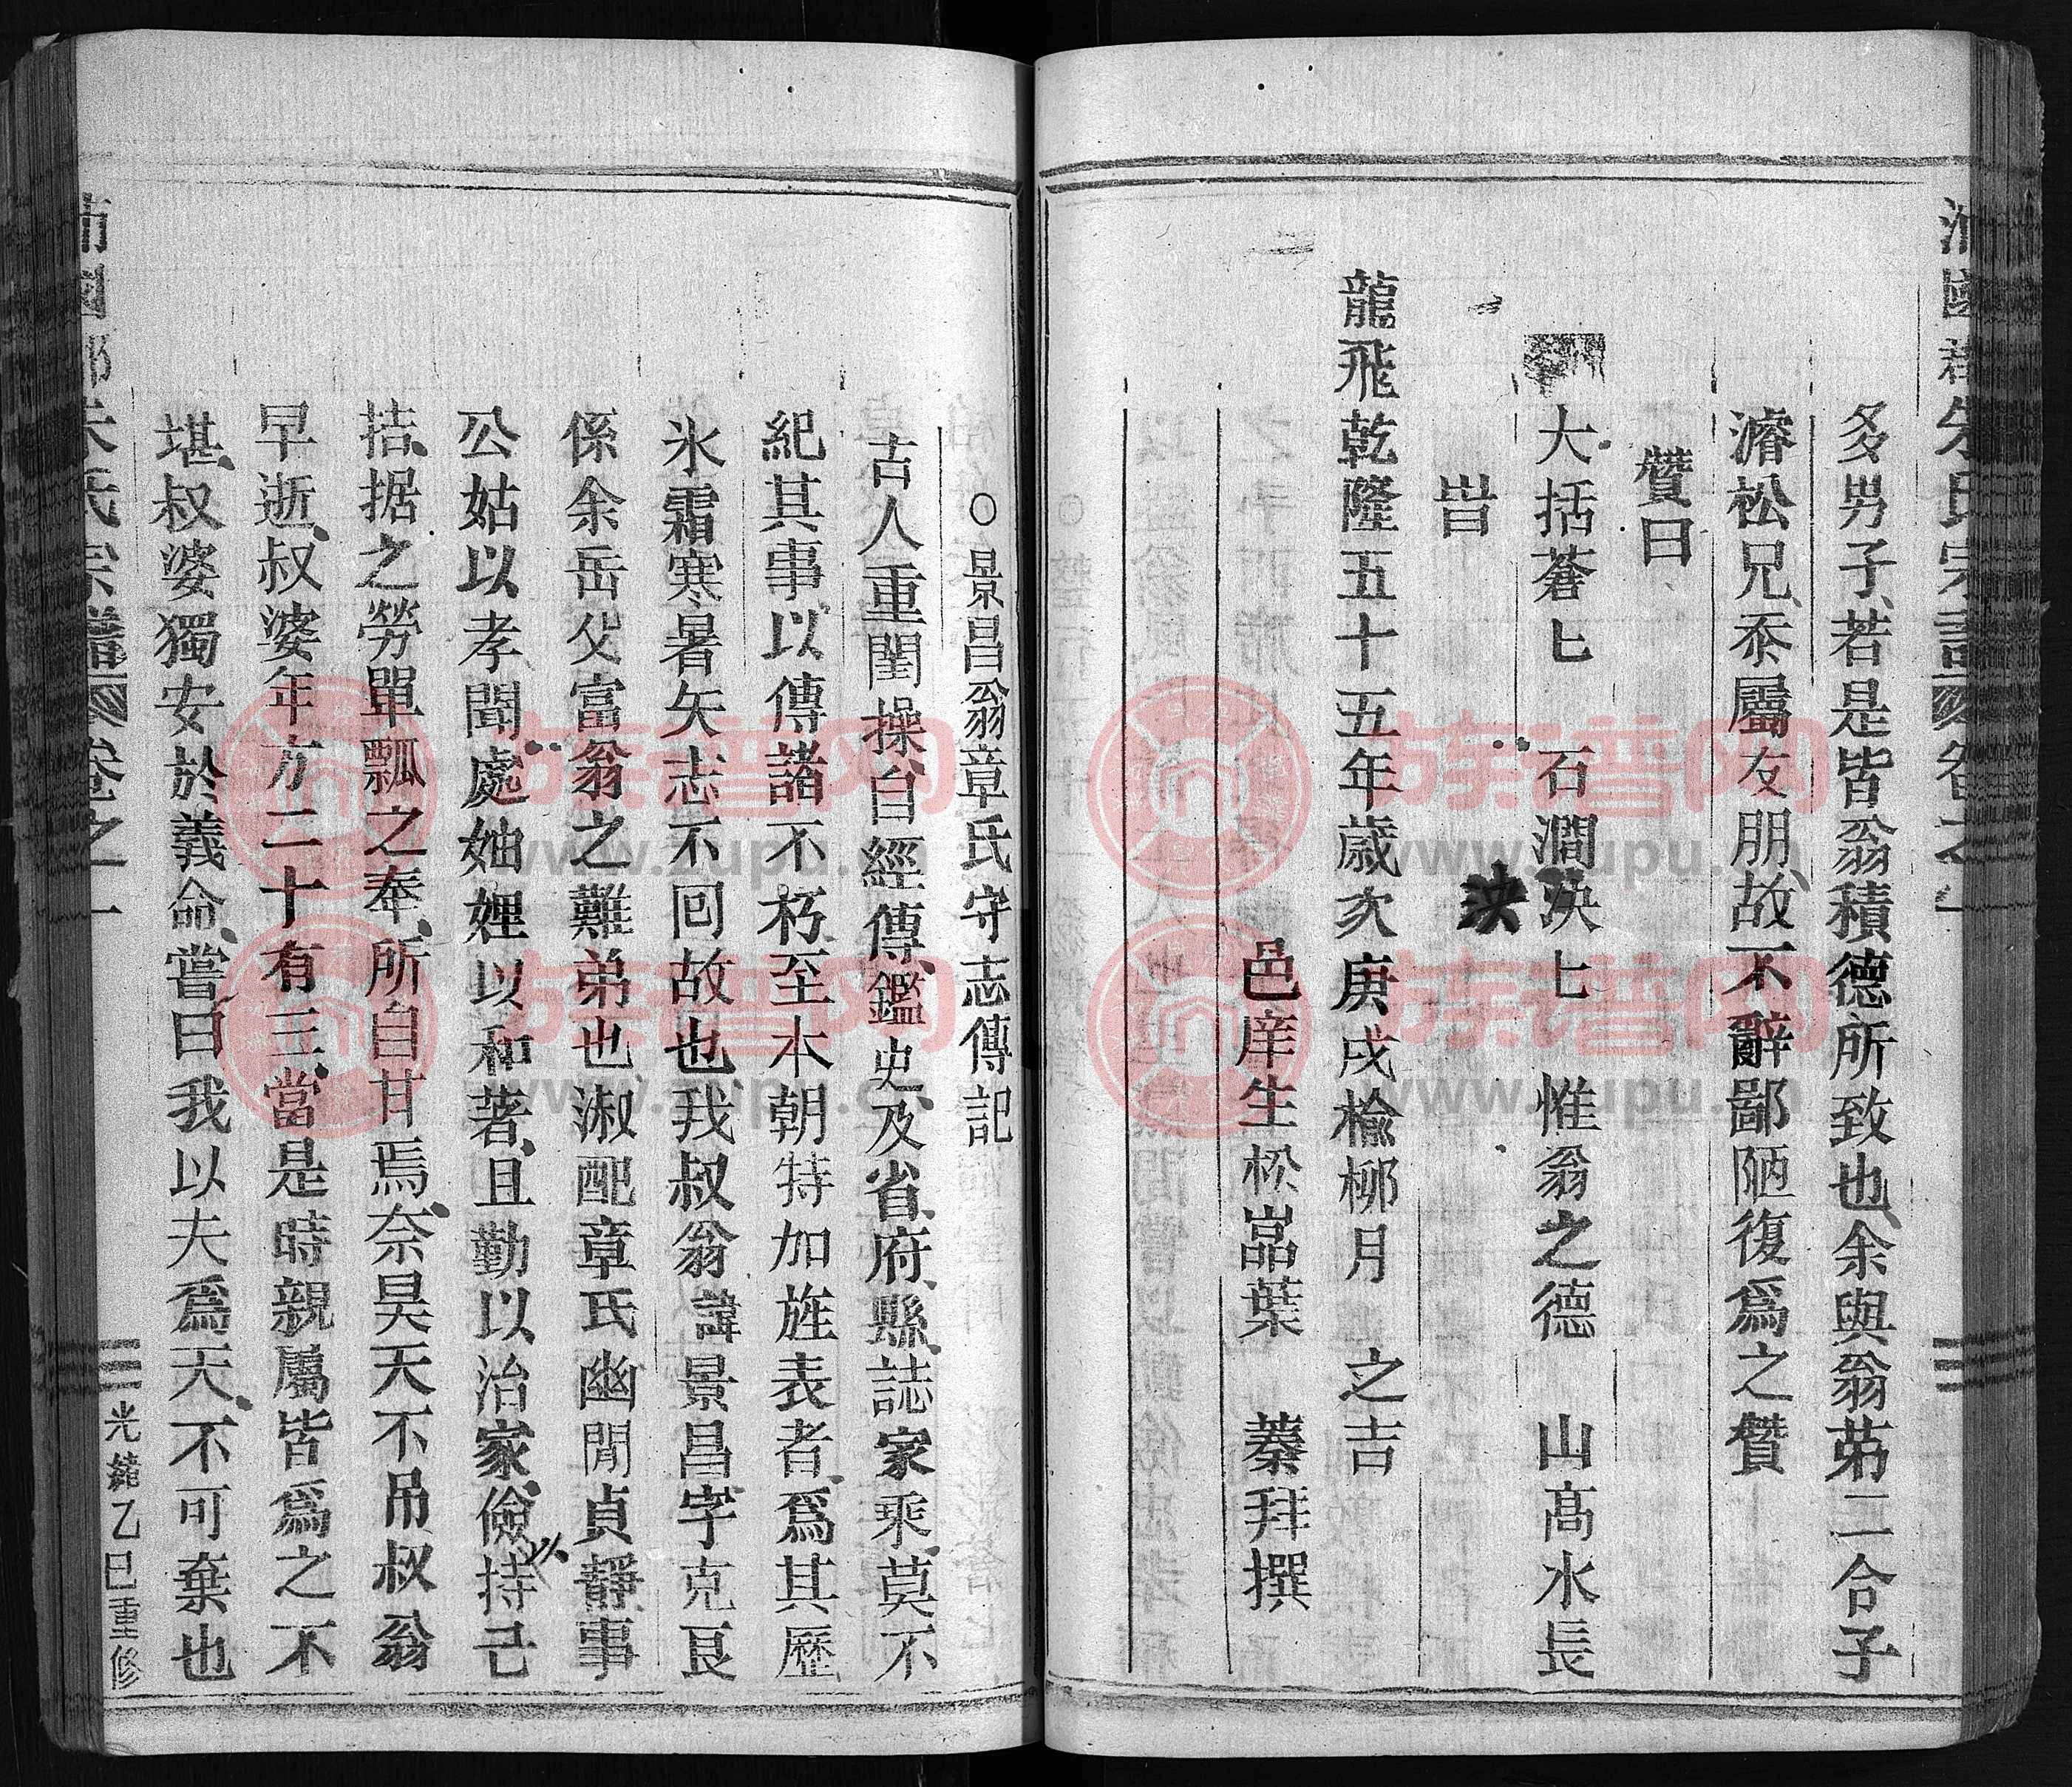 沛國郡朱氏宗譜 卷之一
多男子、若是皆翁積德所致也、余與翁弟二合子
濬松兄、忝屬友朋、故不辭鄙陋復爲之贊
贊曰
大括蒼匕 石澗泱七 惟翁之德 山高水長
泱
旹
龍飛乾隆五十五年歲次庚戌橡栁月 之吉
邑庠生松嵓葉 蓁拜撰
○景昌翁章氏守志傳記
古人重閨操、自經傳、鑑史、及省、府、縣、誌家乘、莫不
紀其事、以傳諸不朽、至本朝特加旌表者、爲其歷
氷霜寒暑矢志不回故也、我叔翁諱景昌字克艮
係余岳父富翁之難弟也淑配章氏幽閒貞靜、事
公姑以孝聞、處妯娌以和著、且勤以治家、儉以持己
拮据之勞、單瓢之奉、所自甘焉、奈昊天不吊叔翁
早逝、叔婆年方二十有三、當是時親屬皆爲之不
堪、叔婆獨安於義命、嘗曰我以夫爲天、不可棄也
沛國郡朱氏宗譜 卷之一
三 光緒乙巳重修
族谱网
www.zupu.cn
族谱网
www.zupu.cn
族谱网
www.zupu.cn
族谱网
www.zupu.cn